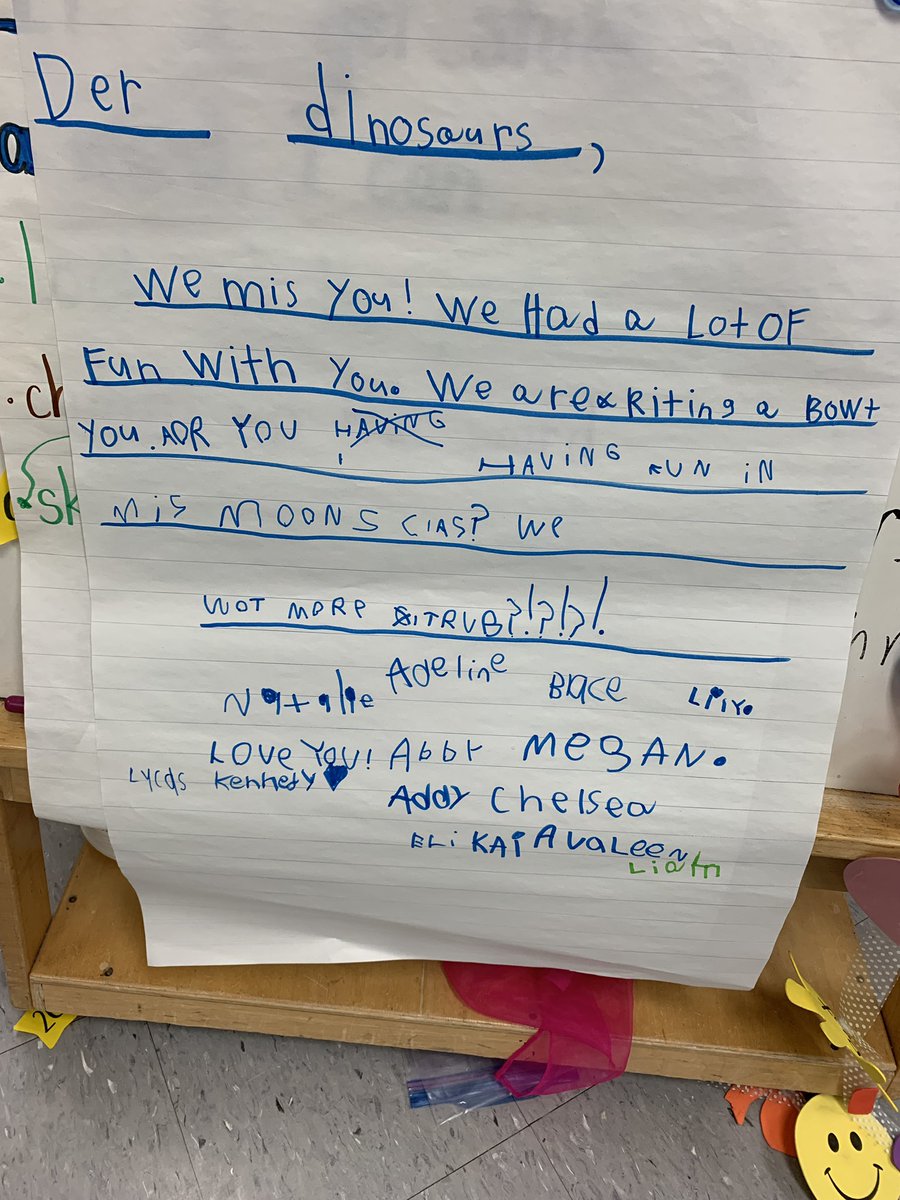 Der dinosaurs,
We mis you! We Had a Lot OF
Fun With you. We are Riting a BOWt
you. AOR YOU HAViNG
HAViNG FUN iN
Mis MOONS CLAS? We
WOT MORE SITRUB?!?!?!
Natalie Adeline Blace
LOVe YOU! Abby MegAN.
Lycds Kennedy
Addy Chelsea
ELi KAi AvaLeen
Liam
.ch
sk